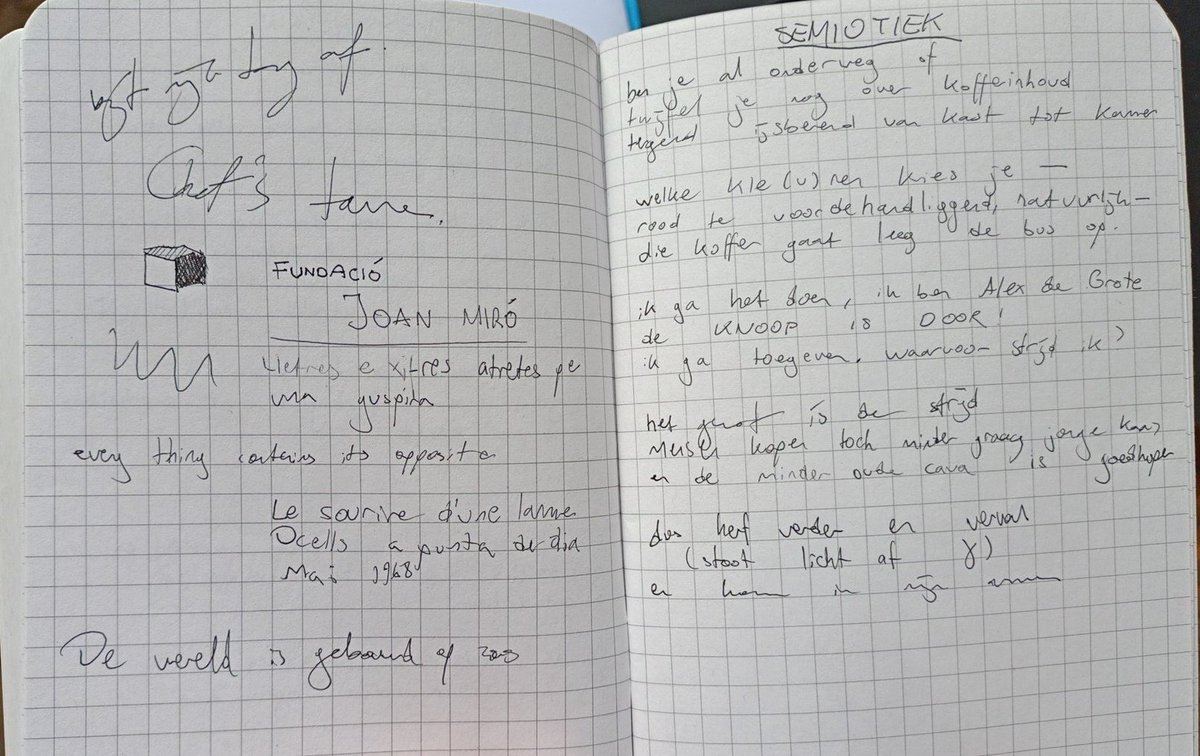 af.
Chef's
FUNDACIÓ
JOAN MIRÓ
Lletres e xifres atretes pe
una guspira
every thing contains its opposite
Le sourire d'une larme
Ocells a punta de dia
Mai 1968
De wereld is gebouwd op
SEMIOTIEK
ben je al onderweg of
twijfel je nog over koffeinhoud
ijsberend van kast tot kamer
welke kle(u)ren kies je —
rood te voordehandliggend, natuurlijk —
die koffer gaat leeg de bus op.
ik ga het doen, ik ben Alex de Grote
de KNOOP is DOOR!
ik ga toegeven, waarvoor strijd ik?
het is de strijd
koper toch minder graag
en de minder oude cava is goedkoper
dus verder en verval
(stoot licht af γ)
en in mijn